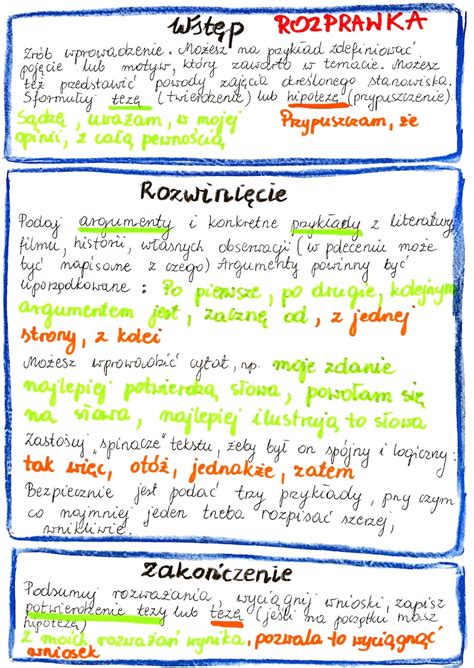 Wstęp ROZPRAWKA
Zrób wprowadzenie. Możesz na przykład zdefiniować
pojęcie lub motyw, który zawarto w temacie. Możesz
też przedstawić powody zajęcia określonego stanowiska.
Sformułuj tezę (twierdzenie) lub hipotezę (przypuszczenie).
Sądzę, uważam, w mojej Przypuszczam, że
opinii, z całą pewnością
Rozwinięcie
Podaj argumenty i konkretne przykłady z literatury,
filmu, historii, własnych obserwacji (w poleceniu może
być napisane z czego) Argumenty powinny być
uporządkowane: Po pierwsze, po drugie, kolejnym
argumentem jest, zacznę od, z jednej
strony, z kolei
Możesz wprowadzić cytat, np. moje zdanie
najlepiej potwierdzą słowa, powołam się
na słowa, najlepiej ilustrują to słowa
Zastosuj „spinacze" tekstu, żeby był on spójny i logiczny:
tak więc, otóż, jednakże, zatem
Bezpiecznie jest podać trzy przykłady, przy czym
co najmniej jeden trzeba rozpisać szerzej,
wnikliwie.
Zakończenie
Podsumuj rozważania, wyciągnij wnioski, zapisz
potwierdzenie tezy lub tezę (jeśli na początku masz
hipotezę)
Z moich rozważań wynika, pozwala to wyciągnąć
wniosek